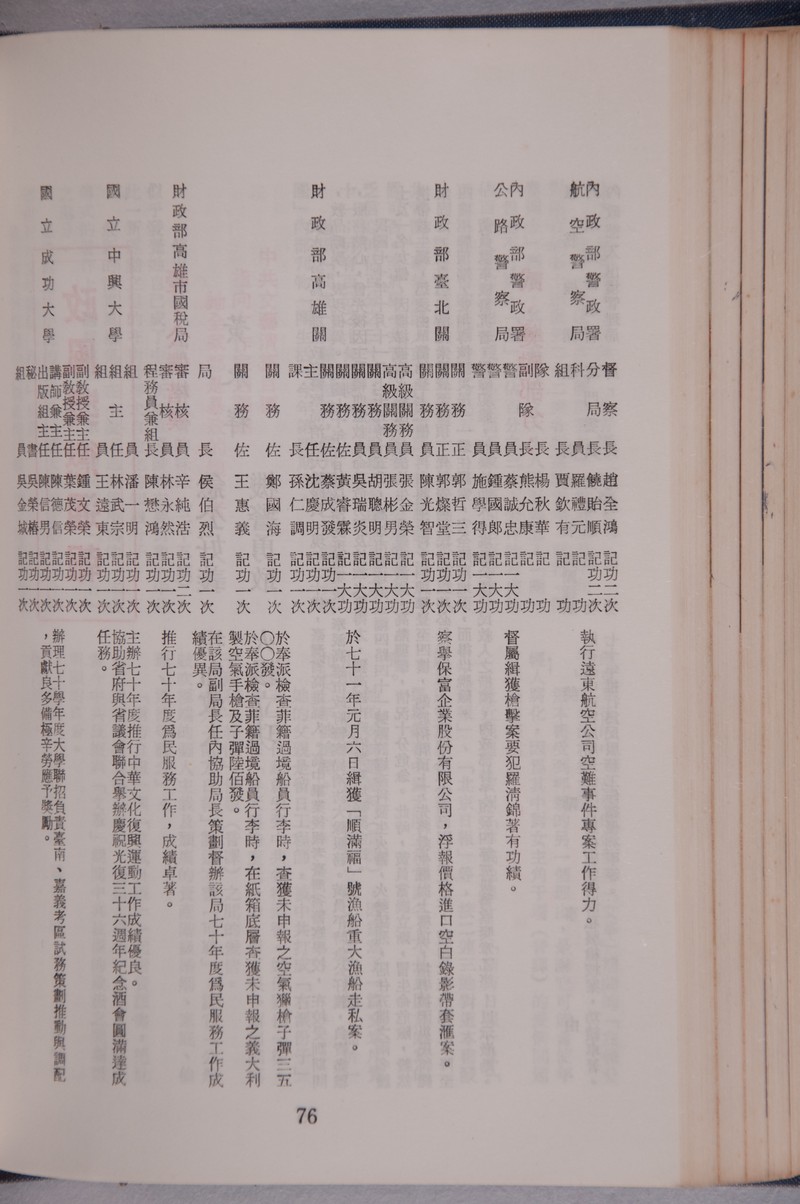 內政部警政署
航空警察局
督察長 趙全鴻 記功二次
分局長 饒貽順 記功二次
科員 羅禮元 記功
組長 賈欽有 記功
執行遠東航空公司空難事件專案工作得力。
內政部警政署
公路警察局
隊長 楊秋華 記功
副隊長 熊允康 記功
警員 蔡誠忠 記一大功
警員 鍾國郎 記一大功
警員 施學得 記一大功
督屬緝獲槍擊案要犯羅淸錦著有功績。
財政部臺北關
關務正 郭哲三 記功一次
關務正 郭燦堂 記功一次
關務員 陳光智 記功一次
察舉保富企業股份有限公司，浮報價格進口空白錄影帶套滙案。
財政部高雄關
高級關務員 張金榮 記一大功
高級關務員 張彬男 記一大功
關務員 胡聰明 記一大功
關務員 吳瑞炎 記一大功
關務佐 黃睿霖 記一大功
關務佐 蔡成發 記功一次
主任 沈慶明 記功一次
課長 孫仁調 記功一次
於七十一年元月六日緝獲「順滿福」號漁船重大漁船走私案。
關務佐 鄭國海 記功一次
於奉派檢查菲籍過境船員行李時，查獲未申報之空氣獵槍子彈三五
〇〇發。
關務佐 王惠義 記功一次
於奉派檢查菲籍過境船員行李時，在紙箱底層查獲未申報之義大利
製空氣手槍及子彈陸佰發。
局長 侯伯烈 記功一次
在該局副局長任內協助局長策劃督辦該局七十年度爲民服務工作成
績優異。
財政部高雄市國稅局
審核員 辛純浩 記功二次
審核員 林永然 記功一次
程務員兼組長 陳懋鴻 記功一次
推行七十年度爲民服務工作，成績卓著。
國立中興大學
組員 潘一明 記功一次
組主任 林武宗 記功一次
組員 王遠東 記功一次
主辦七十年度推行中華文化復興運動工作成績優良。
協助省府與省議會聯合舉辦慶祝光復三十六週年紀念酒會圓滿達成
任務。
國立成功大學
副教授兼主任 鍾文榮 記功一次
副教授兼主任 葉茂榮 記功一次
講師兼主任 陳德信 記功一次
出版組主任 陳信男 記功一次
秘書 吳榮椿 記功一次
組員 吳金城 記功一次
辦理七十學年度大學聯招負責臺南、嘉義考區試務策劃推動與調配
，貢獻良多備極辛勞應予獎勵。
76